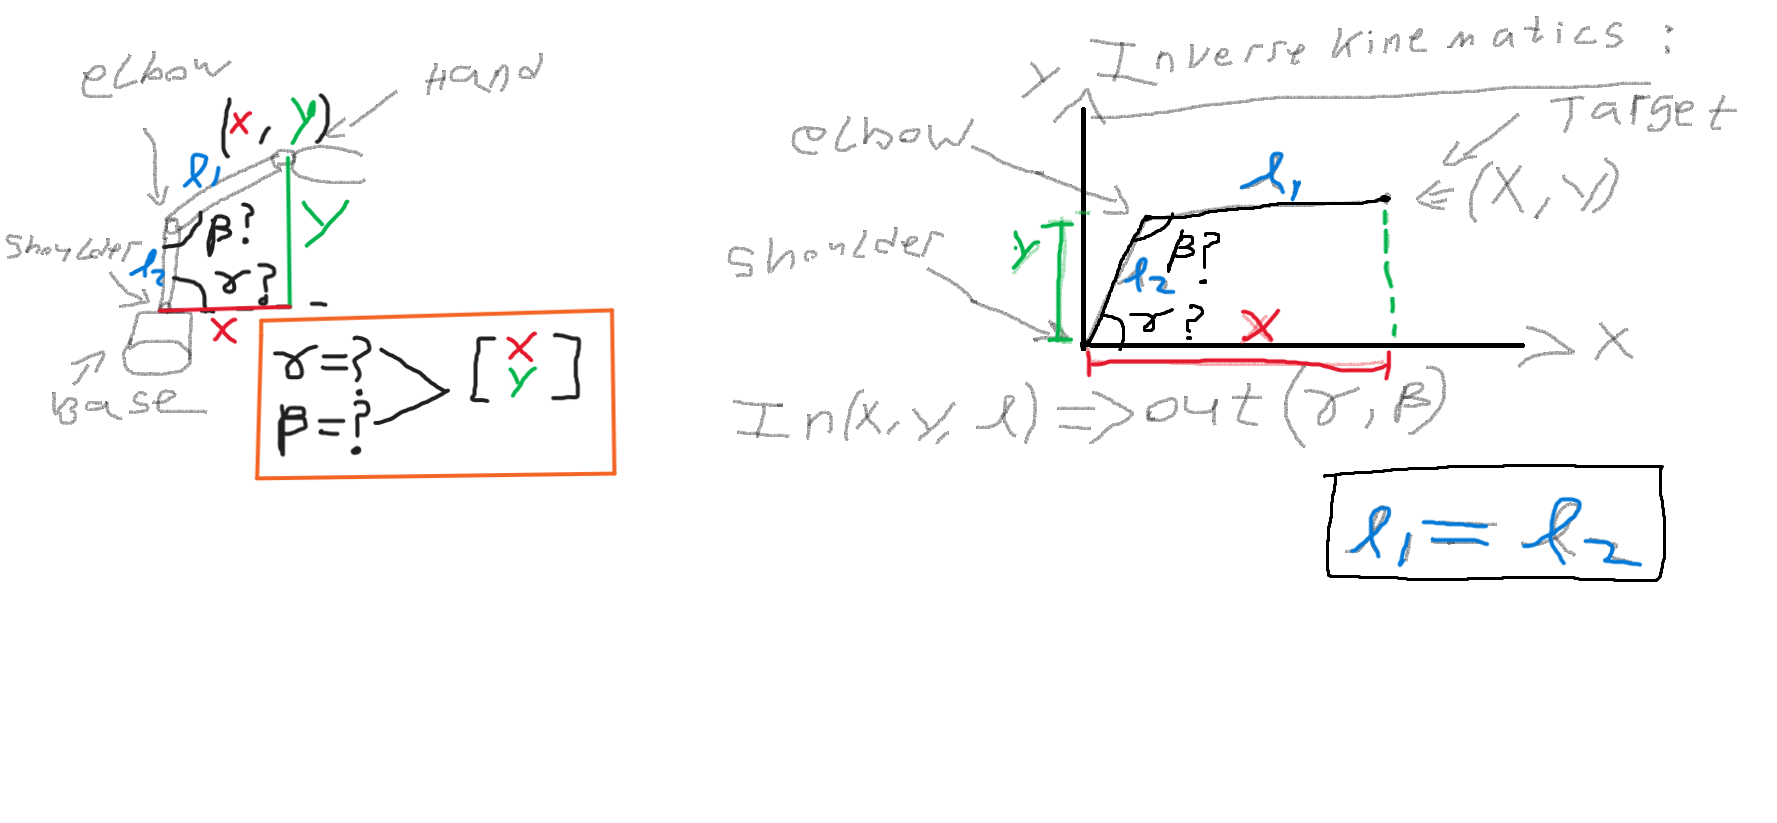 elbow
Hand
(x, y)
l1
β?
y
shoulder
l2
γ?
x
Base
γ=?
β=?
[x
y]
Inverse kinematics:
y
Target
elbow
l1
(x, y)
shoulder
y
β?
l2
γ?
x
x
In(x, y, l) => out(γ, β)
l1 = l2